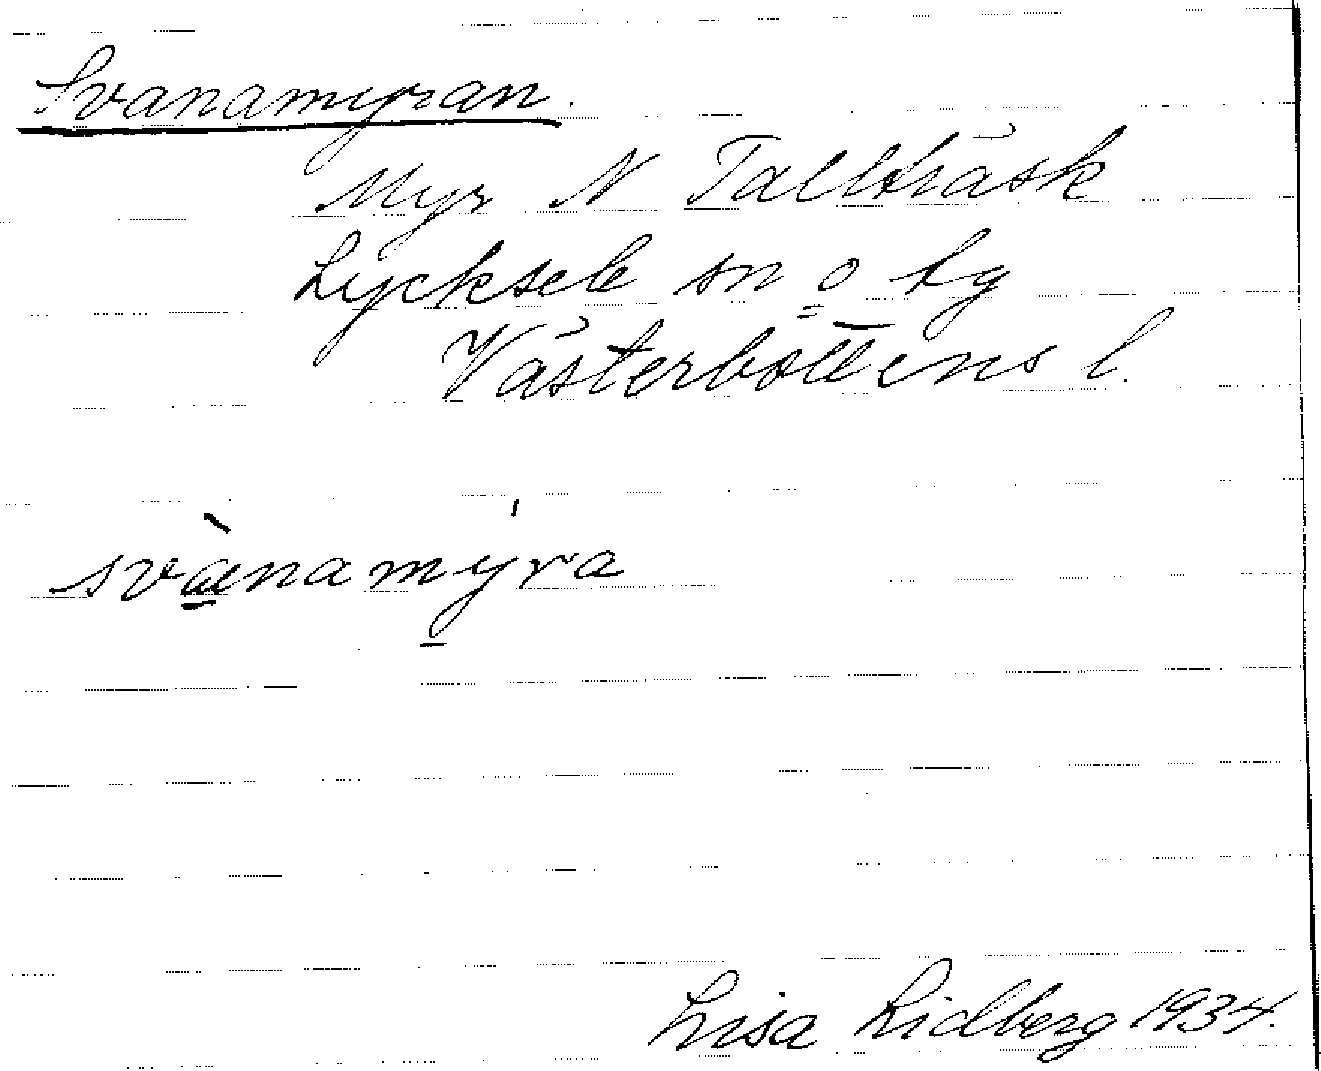 Svanamyran.
Myr N Tallträsk
Lycksele sn o lg
Västerbottens l.
svànamýra
Lisa Lidberg 1934.